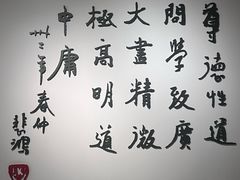 尊德性道
問學致廣
大盡精微
極高明道
中庸
卅二年春仲
悲鴻